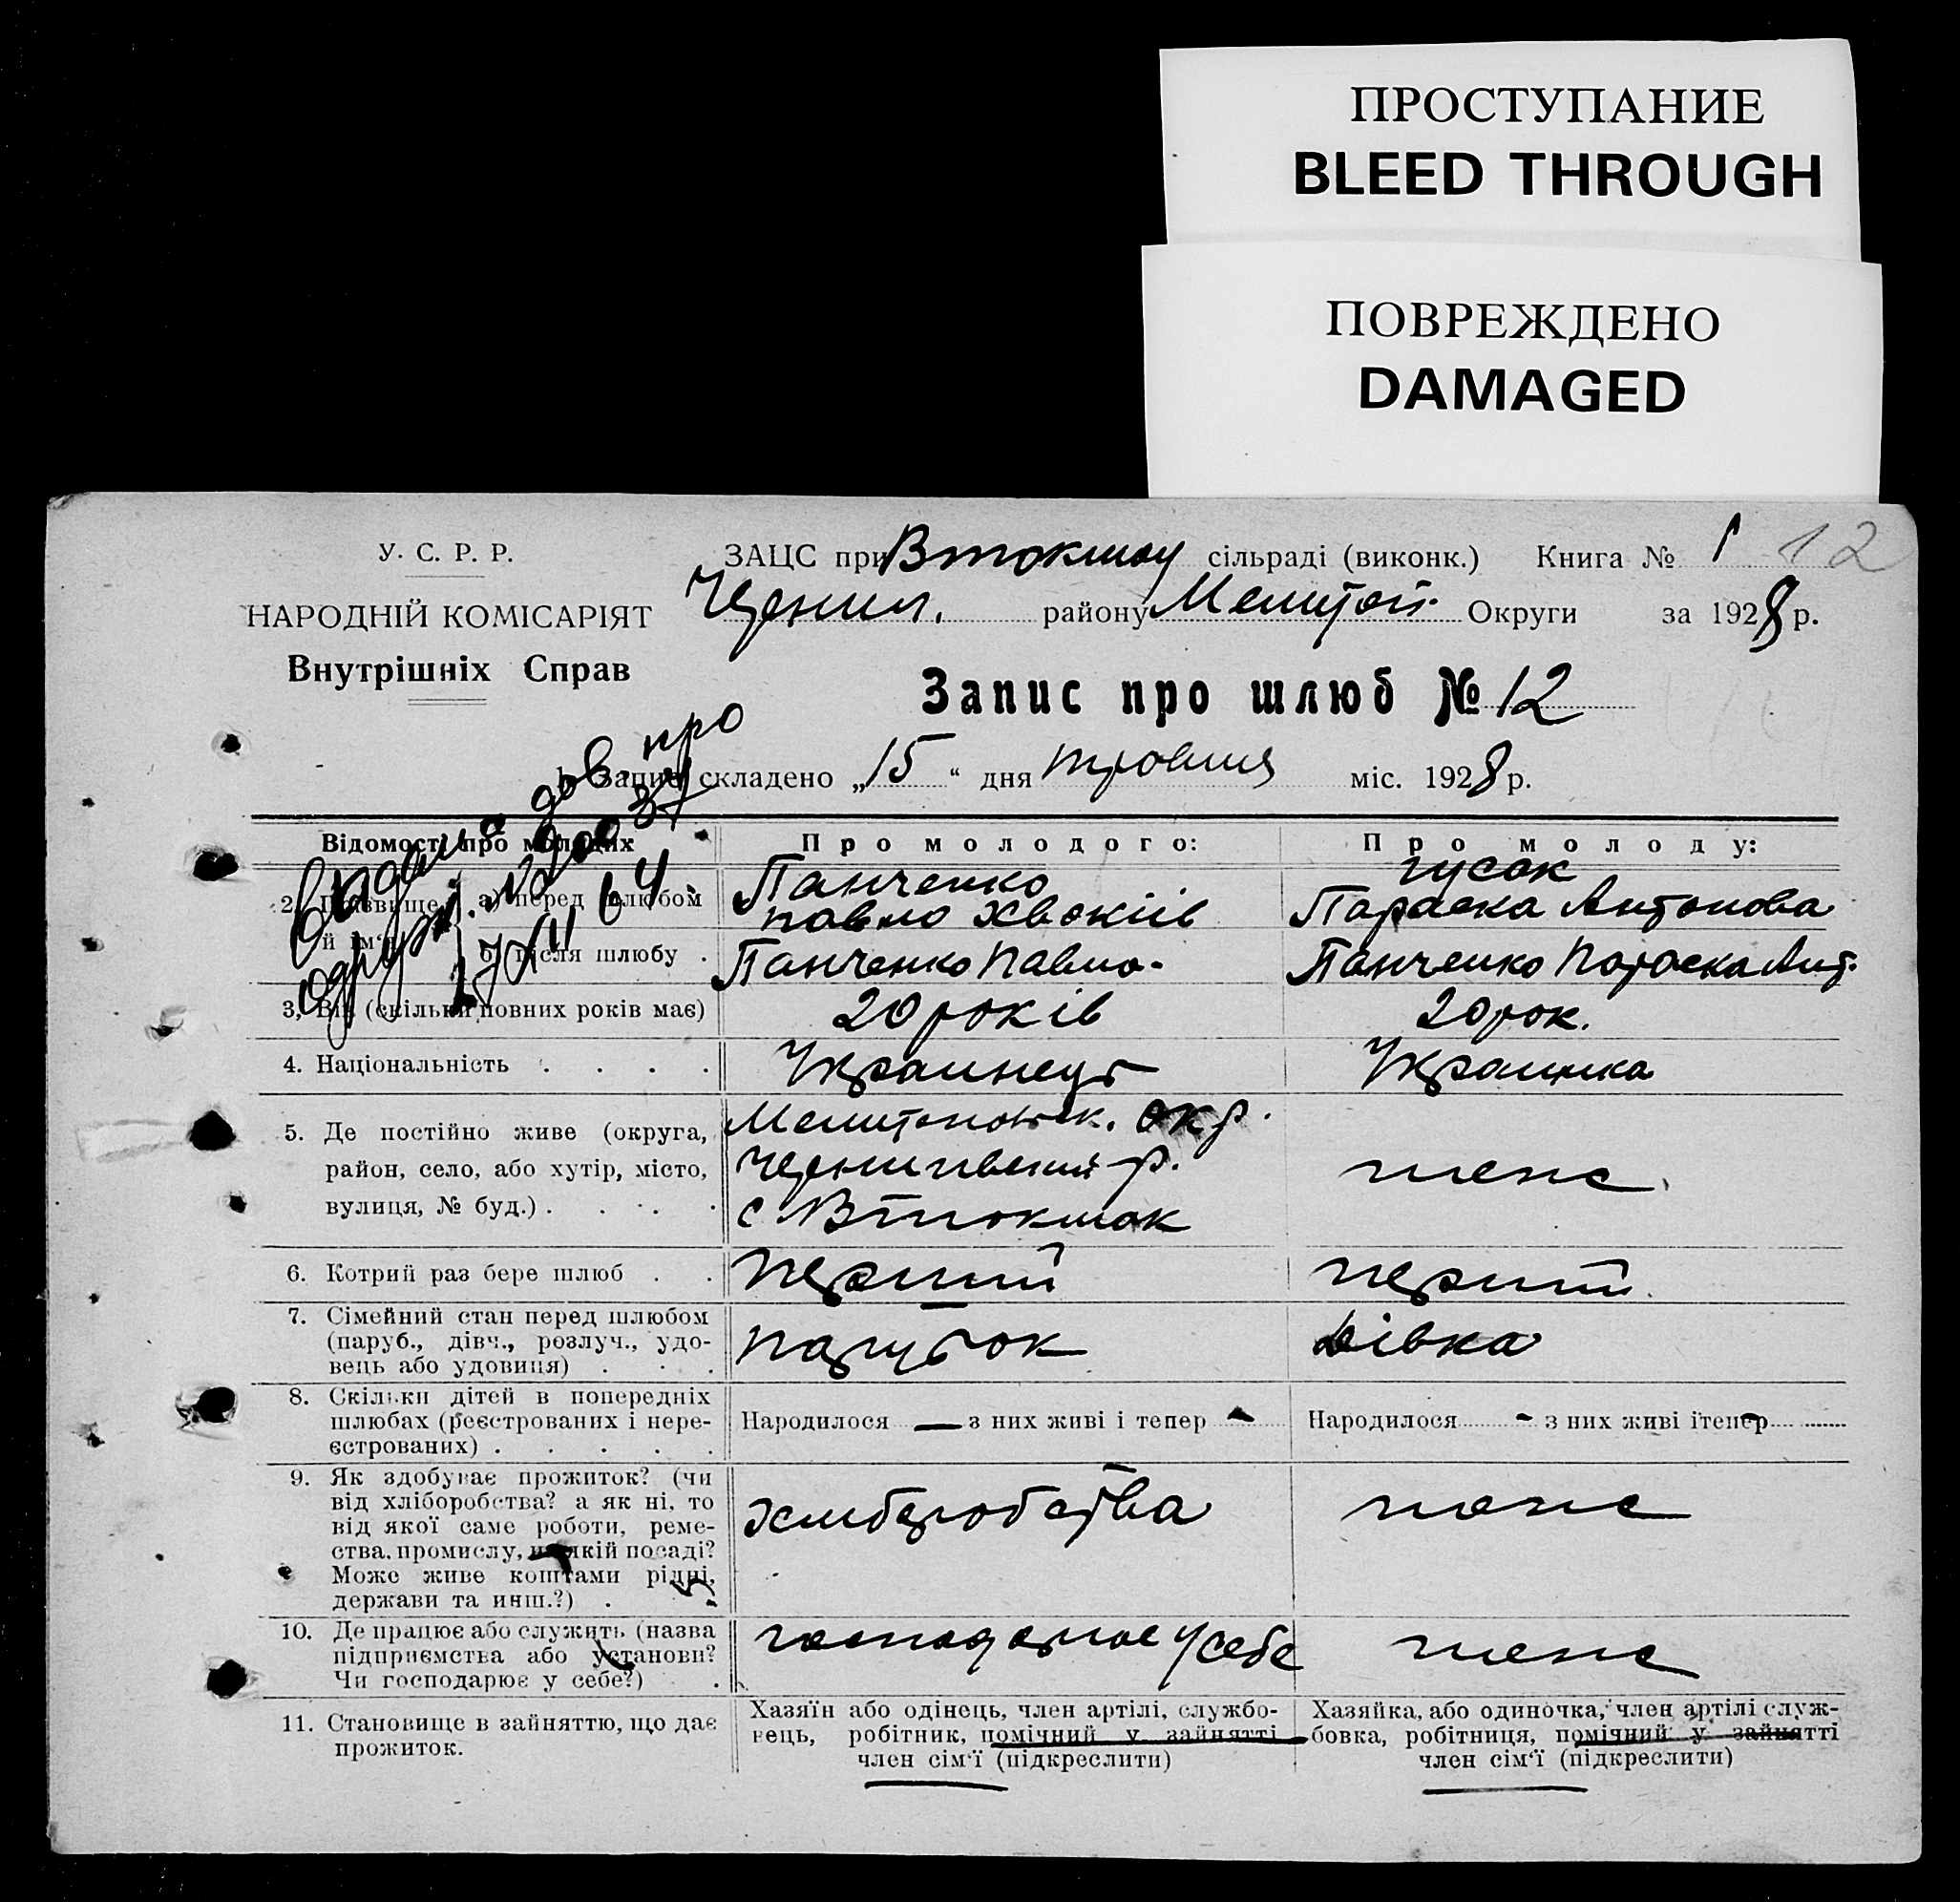 ПРОСТУПАНИЕ
BLEED THROUGH
ПОВРЕЖДЕНО
DAMAGED
У. С. Р. Р.
НАРОДНІЙ КОМІСАРІЯТ
Внутрішніх Справ
ЗАЦС при Втокмач сільраді (виконк.) Книга № 1 12
Черниг. району Мелитоп. Округи за 1928 р.
Запис про шлюб № 12
1. Запис складено „15“ дня травня міс. 1928 р.
Відомості про молодих
Про молодого:
Про молоду:
2. Прізвище й ім'я
а) перед шлюбом
Панченко
Павло
Гусак
Параска Антонова
б) після шлюбу
Панченко Павло
Панченко Параска Ант.
3. Вік (скільки повних років має)
20 років
20 рок.
4. Національність
Украинець
Украинка
5. Де постійно живе (округа,
район, село, або хутір, місто,
вулиця, № буд.)
Мелитопольск. окр.
Чернигивский р.
с Втокмак
теж
6. Котрий раз бере шлюб
первий
первий
7. Сімейний стан перед шлюбом
(паруб., дівч., розлуч., удо-
вець або удовиця)
парубок
дівка
8. Скільки дітей в попередніх
шлюбах (реєстрованих і нере-
єстрованих)
Народилося — з них живі і тепер -
Народилося - з них живі і тепер -
9. Як здобуває прожиток? (чи
від хліборобства? а як ні, то
від якої саме роботи, реме-
ства, промислу, на якій посаді?
Може живе коштами рідні,
держави та инш.?)
хлиборобства
10. Де працює або служить (назва
підприємства або установи?
Чи господарює у себе?)
господарює у себе
11. Становище в зайняттю, що дає
прожиток.
Хазяїн або одінець, член артілі, службо-
вець, робітник, помічний у зайнятті
член сім'ї (підкреслити)
Хазяйка, або одиночка, член артілі служ-
бовка, робітниця, помічний у зайнятті
член сім'ї (підкреслити)